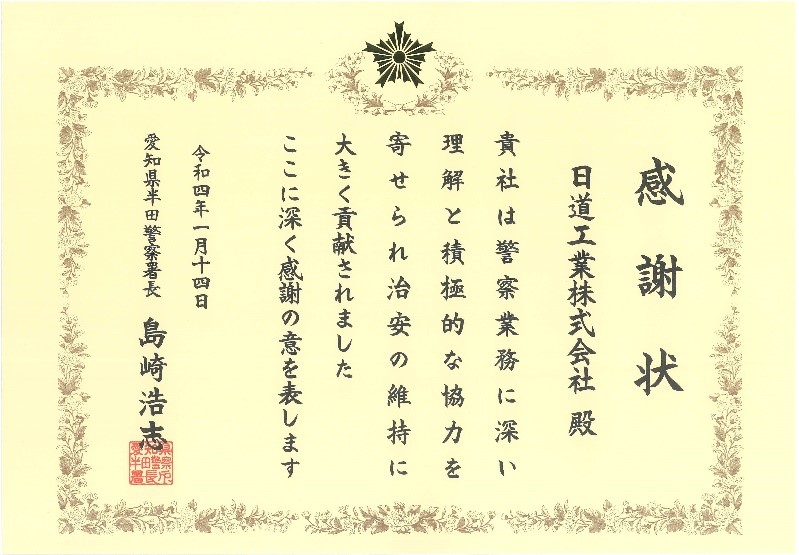 感謝状
日道工業株式会社 殿
貴社は警察業務に深い
理解と積極的な協力を
寄せられ治安の維持に
大きく貢献されました
ここに深く感謝の意を表します
令和四年一月十四日
愛知県半田警察署長 島崎浩志